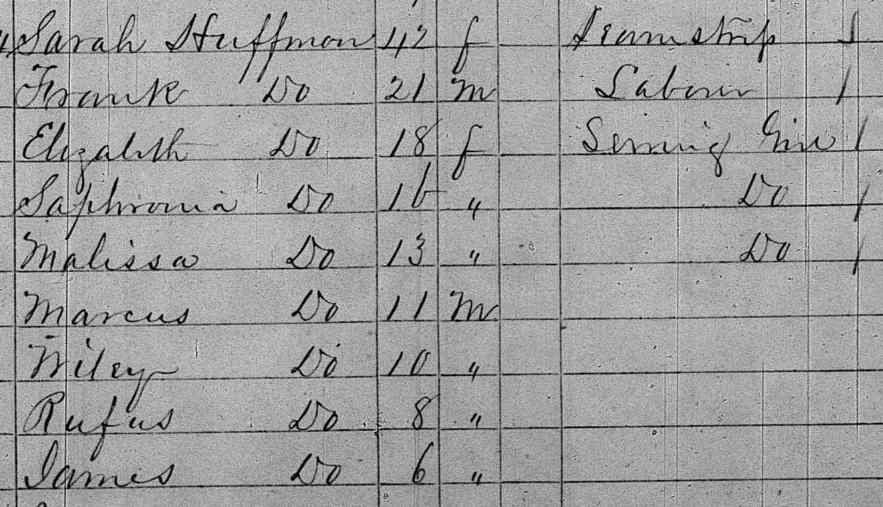 Sarah Huffman 42 f Seamstrip /
Frank Do 21 m Laborer /
Elizabeth Do 18 f Serving Girl /
Saphronia Do 16 " Do /
Malissa Do 13 " Do /
Marcus Do 11 m
Wiley Do 10 "
Rufus Do 8 "
James Do 6 "